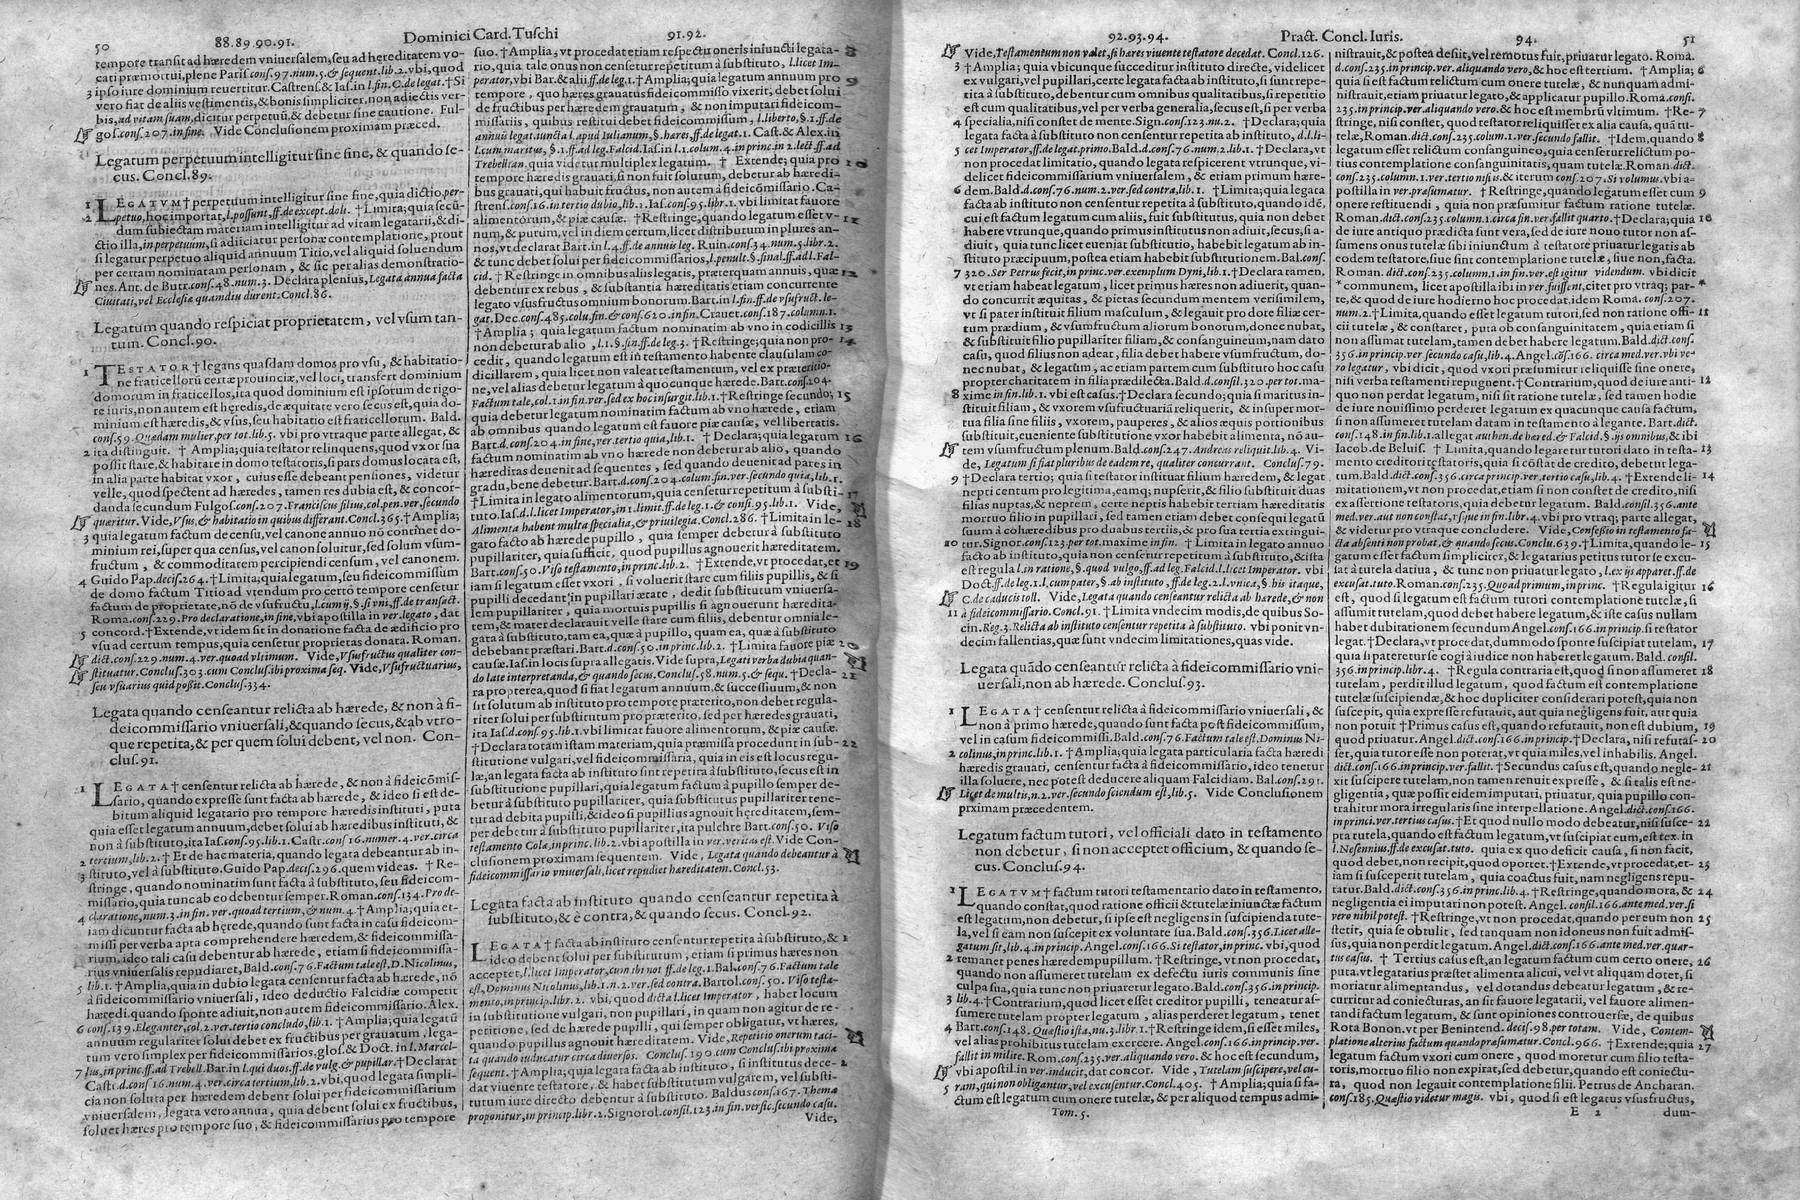 50 88.89.90.91. Dominici Card. Tuschi 91.92.
tempore transit ad hæredem vniuersalem, seu ad hęreditatem vo-
cati præmortui, plene Paris cons. 97. num. 5. & sequent. lib. 2. vbi, quod
3 ipso iure dominium reuertitur. Castrens. & Ias. in l. fin. C. de legat. † Si
vero fiat de aliis vestimentis, & bonis simpliciter, non adiectis ver-
bis, ad vitam suam, dicitur perpetuũ, & debetur sine cautione. Ful-
gos. cons. 207. in fine. Vide Conclusionem proximam præced.
Legatum perpetuum intelligitur sine fine, & quando se-
cus. Concl. 89.
1 LEGATVM † perpetuum intelligitur sine fine, quia dictio, per-
2 petuo, hoc importat, l. possunt, ff. de except. doli. † Limita; quia secũ-
dum subiectam materiam intelligitur ad vitam legatarii, & di-
ctio illa, in perpetuũm, si adiiciatur personæ contemplatione, prout
si legatur perpetuo aliquid annuum Titio, vel aliquid soluendum
per certam nominatam personam, & sic per alias demonstratio-
nes. Ant. de Butr. cons. 48. num. 3. Declara plenius, Legata annua facta
Ciuitati, vel Ecclesiæ quamdiu durent. Concl. 86.
Legatum quando respiciat proprietatem, vel vsum tan-
tum. Concl. 90.
1 TESTATOR † legans quasdam domos pro vsu, & habitatio-
ne fraticellorũ certæ prouinciæ, vel loci, transfert dominium
domorum in fraticellos, ita quod dominium est ipsorum de rigo-
re iuris, non autem est hęredis, de æquitate vero secus est, quia do-
minium est hæredis, & vsus, seu habitatio est fraticellorum. Bald.
cons. 59. Quædam mulier, per tot. lib. 5. vbi pro vtraque parte allegat, &
2 ita distinguit. † Amplia; quia testator relinquens, quod vxor sua
possit stare, & habitare in domo testatoris, si pars domus locata est,
in alia parte habitat vxor, cuius esse debeant pensiones, videtur
velle, quod spectent ad hæredes, tamen res dubia est, & concor-
danda secundum Fulgos. cons. 207. Franciscus filius, col. pen. ver. secundo
quæritur. Vide, Vsus, & habitatio in quibus differant. Concl. 365. † Amplia;
3 quia legatum factum de censu, vel canone annuo nõ continet do-
minium rei, super qua census, vel canon soluitur, sed solum vsum-
fructum, & commoditatem percipiendi censum, vel canonem.
4 Guido Pap. decis. 264. † Limita; quia legatum, seu fideicommissum
de domo factum Titio ad vtendum pro certo tempore censetur
factum de proprietate, nõ de vsufructu, l. cum ij, §. si vni, ff. de transact.
Roma. cons. 229. Pro declaratione, in fine, vbi apostilla in ver. legato, dat
5 concord. † Extende, vt idem sit in donatione facta de ædificio pro
vsu ad certum tempus, quia censetur proprietas donata. Roman.
dict. cons. 229. num. 4. ver. quoad vltimum. Vide, Vsusfructus qualiter con-
stituatur. Conclus. 303. cum Conclus. ibi proxima seq. Vide, Vsufructuarius,
seu vsuarius quid possit. Conclus. 334.
Legata quando censeantur relicta ab hærede, & non à fi-
deicommissario vniuersali, & quando secus, & ab vtro-
que repetita, & per quem solui debent, vel non. Con-
clus. 91.
1 LEGATA † censentur relicta ab hærede, & non à fideicõmis-
sario, quando expresse sunt facta ab hærede, & ideo si est de-
bitum aliquid legatario pro tempore hæredis instituti, puta
quia esset legatum annuum, debet solui ab hæredibus instituti, &
non à substituto, ita Ias. cons. 95. lib. 1. Castr. cons. 16. numer. 4. ver. circa
2 tertium, lib. 2. † Et de hac materia, quando legata debeantur ab in-
stituto, vel à substituto. Guido Pap. decis. 296. quem videas. † Re-
3 stringe, quando nominatim sunt facta à substituto, seu fideicom-
missario, quia tunc ab eo debentur semper. Roman. cons. 134. Pro de-
4 claratione, num. 3. in fin. ver. quoad tertium, & num. 4. † Amplia; quia et-
iam dicuntur facta ab hęrede, quando sunt facta in casu fideicom-
missi per verba apta comprehendere hæredem, & fideicommissa-
rium, ideo tali casu debentur ab hærede, etiam si fideicommissa-
rius vniuersalis repudiaret, Bald. cons. 76. Factum tale est, D. Nicolinus,
5 lib. 1. † Amplia; quia in dubio legata censentur facta ab hærede, nõ
à fideicommissario vniuersali, ideo deductio Falcidiæ competit
hæredi, quando sponte adiuit, non autem fideicommissario. Alex.
6 cons. 139. Eleganter, col. 2. ver. tertio concludo, lib. 1. † Amplia; quia legatũ
annuum regulariter solui debet ex fructibus per grauatum, lega-
tum vero simplex per fideicommissarios, glos. & Doct. in l. Marcel-
7 lus, in princ. ff. ad Trebell. Bar. in l. qui duos. ff. de vulg. & pupillar. † Declarat
Cast. d. cons. 16. num. 4. ver. circa tertium, lib. 2. vbi, quod legata simpli-
cia non soluta per hæredem debent solui per fideicommissarium
vniuersalem, legata vero annua, quia debent solui ex fructibus,
soluet hæres pro tempore suo, & fideicommissarius pro tempore
suo. † Amplia, vt procedat etiam respectu oneris iniuncti legata- 8
rio, quia tale onus non censetur repetitum à substituto, l. licet Im-
perator, vbi Bar. & alii, ff. de leg. 1. † Amplia; quia legatum annuum pro 9
tempore, quo hæres grauatus fideicommisso vixerit, debet solui
de fructibus per hæredem grauatum, & non imputari fideicom-
missariis, quibus restitui debet fideicommissum, l. liberto, §. 1. ff. de
annuis legat. iuncta l. apud Iulianum, §. hæres, ff. de legat. 1. Cast. & Alex. in
l. cum maritus, §. 1. ff. ad leg. Falcid. Ias. in l. 1. colum. 4. in princ. in 2. lect. ff. ad
Trebellian. quia videtur multiplex legatum. † Extende; quia pro 10
tempore hæredis grauati, si non fuit solutum, debetur ab hæredi-
bus grauati, qui habuit fructus, non autem à fideicõmissario. Ca-
strens. cons. 16. in tertio dubio, lib. 2. Ias. cons. 95. lib. 1. vbi limitat fauore
alimentorum, & piæ causæ. † Restringe, quando legatum esset v- 11
num, & purum, vel in diem certum, licet distributum in plures an-
nos, vt declarat Bart. in l. 4. ff. de annuis leg. Ruin. cons. 34. num. 5. libr. 2.
& tunc debet solui per fideicommissarios, l. penult. §. final. ff. ad l. Fal-
cid. † Restringe in omnibus aliis legatis, præterquam annuis, quæ 12
debentur ex rebus, & substantia hæreditatis etiam concurrente
legato vsusfructus omnium bonorum. Bart. in l. fin. ff. de vsufruct. le-
gat. Dec. cons. 485. colu. fin. & cons. 620. in fin. Crauet. cons. 187. column. 1.
† Amplia; quia legatum factum nominatim ab vno in codicillis 13
non debetur ab alio, l. 1. §. fin. ff. de leg. 3. † Restringe; quia non pro- 14
cedit, quando legatum est in testamento habente clausulam co-
dicillarem, quia licet non valeat testamentum, vel ex præteritio-
ne, vel alias debetur legatum à quocunque hærede. Bart. cons. 204.
Factum tale, col. 1. in fin. ver. sed ex hoc insurgit. lib. 1. † Restringe secundo; 15
quia debetur legatum nominatim factum ab vno hærede, etiam
ab omnibus quando legatum est fauore piæ causæ, vel libertatis.
Bart. d. cons. 204. in fine, ver. tertio quia, lib. 1. † Declara; quia legatum 16
factum nominatim ab vno hærede non debetur ab alio, quando
hæreditas deuenit ad sequentes, sed quando deuenit ad pares in
gradu, bene debetur. Bart. d. cons. 204. colum. fin. ver. secundo quia, lib. 1.
† Limita in legato alimentorum, quia censetur repetitum à substi- 17
tuto. Ias. d. l. licet Imperator, in 1. limit. ff. de leg. 1. & consi. 95. lib. 1. Vide,
Alimenta habent multa specialia, & priuilegia. Concl. 286. † Limita in le- 18
gato facto ab hærede pupillo, quia semper debetur à substituto
pupillariter, quia sufficit, quod pupillus agnouerit hæreditatem.
Bart. cons. 50. Viso testamento, in princ. lib. 2. † Extende, vt procedat, et- 19
iam si legatum esset vxori, si voluerit stare cum filiis pupillis, & si
pupilli decedant in pupillari ætate, dedit substitutum vniuersa-
lem pupillariter, quia mortuis pupillis si agnouerunt hæredita-
tem, & mater declarauit velle stare cum filiis, debentur omnia le-
gata à substituto, tam ea, quæ à pupillo, quam ea, quæ à substituto
debebant præstari. Bart. d. cons. 50. in princ. lib. 2. † Limita fauore piæ 20
causæ. Ias. in locis supra allegatis. Vide supra, Legati verba dubia quan-
do late interpretanda, & quando secus. Conclus. 58. num. 5. & sequ. † Decla- 21
ra propterea, quod si fiat legatum annuum, & successiuum, & non
sit solutum ab instituto pro tempore præterito, non debet regula-
riter solui per substitutum pro præterito, sed per hæredes grauati,
ita Ias. d. cons. 95. lib. 1. vbi limitat fauore alimentorum, & piæ causæ.
† Declara totam istam materiam, quia præmissa procedunt in sub- 22
stitutione vulgari, vel fideicommissaria, quia in eis est locus regu-
læ, an legata facta ab instituto sint repetita à substituto, secus est in
substitutione pupillari, quia legatum factum à pupillo semper de-
betur à substituto pupillariter, quia substitutus pupillariter tene-
tur ad debita pupilli, & ideo si pupillus agnouit hęreditatem, sem-
per debetur à substituto pupillariter, ita pulchre Bart. cons. 50. Viso
testamento Cola, in princ. lib. 2. vbi apostilla in ver. veritas est. Vide Con-
clusionem proximam sequentem. Vide, Legata quando debeantur à
fideicommissario vniuersali, licet repudiet hæreditatem. Concl. 53.
Legata facta ab instituto quando censeantur repetita à
substituto, & è contra, & quando secus. Concl. 92.
LEGATA † facta ab instituto censentur repetita à substituto, & 1
ideo debent solui per substitutum, etiam si primus hæres non
acceptet, l. licet Imperator, cum ibi not. ff. de leg. 1. Bal. cons. 76. Factum tale
est, Dominus Nicolinus, lib. 1. n. 2. ver. sed contra. Bartol. cons. 50. Viso testa-
mento, in princ. libr. 2. vbi, quod dicta l. licet Imperator, habet locum
in substitutione vulgari, non pupillari, in quam non agitur de re-
petitione, sed de hærede pupilli, qui semper obligatur, vt hæres,
quando pupillus agnouit hæreditatem. Vide, Repetitio onerum taci-
ta quando inducatur circa diuersos. Conclus. 190. cum Conclus. ibi proxima
sequent. † Amplia; quia legata facta ab instituto, si institutus dece- 2
dat viuente testatore, & habet substitutum vulgarem, vel substi-
tutum iure directo debentur à substituto. Baldus cons. 167. Thema
proponitur, in princip. libr. 2. Signorol. consil. 123. in fin. versic. secundo casu.
Vide,
92.93.94. Pract. Concl. Iuris. 94. 51
Vide, Testamentum non valet, si hæres viuente testatore decedat. Concl. 126.
3 † Amplia; quia vbicunque succeditur instituto directe, videlicet
ex vulgari, vel pupillari, certe legata facta ab instituto, si sunt repe-
tita à substituto, debentur cum omnibus qualitatibus, si repetitio
est cum qualitatibus, vel per verba generalia, secus est, si per verba
4 specialia, nisi constet de mente. Sign. cons. 123. nu. 2. † Declara; quia
legata facta à substituto non censentur repetita ab instituto, d. l. li-
5 cet Imperator, ff. de legat. primo. Bald. d. cons. 76. num. 2. lib. 1. † Declara, vt
non procedat limitatio, quando legata respicerent vtrunque, vi-
delicet fideicommissarium vniuersalem, & etiam primum hære-
6 dem. Bald. d. cons. 76. num. 2. ver. sed contra, lib. 1. † Limita; quia legata
facta ab instituto non censentur repetita à substituto, quando idẽ,
cui est factum legatum cum aliis, fuit substitutus, quia non debet
habere vtrunque, quando primus institutus non adiuit, secus, si a-
diuit, quia tunc licet eueniat substitutio, habebit legatum ab in-
stituto præcipuum, postea etiam habebit substitutionem. Bal. cons.
7 320. Ser Petrus fecit, in princ. ver. exemplum Dyni, lib. 1. † Declara tamen,
vt etiam habeat legatum, licet primus hæres non adiuerit, quan-
do concurrit æquitas, & pietas secundum mentem verisimilem,
vt si pater instituit filium masculum, & legauit pro dote filiæ cer-
tum prædium, & vsumfructum aliorum bonorum, donec nubat,
& substituit filio pupillariter filiam, & consanguineum, nam dato
casu, quod filius non adeat, filia debet habere vsumfructum, do-
nec nubat, & legatum, ac etiam partem cum substituto, licet hoc
propter charitatem in filia prædilecta. Bald. d. consil. 320. per tot. ma-
8 xime in fin. lib. 1. vbi est casus. † Declara secundo; quia si maritus in-
stituit filiam, & vxorem vsufructuariã reliquerit, & insuper mor-
tua filia sine filiis, vxorem, pauperes, & alios æquis portionibus
substituit, eueniente substitutione vxor habebit alimenta, nõ au-
tem vsumfructum plenum. Bald. cons. 247. Andreas reliquit. lib. 4. Vi-
de, Legatum si fiat pluribus de eadem re, qualiter concurrant. Conclus. 79.
9 † Declara tertio; quia si testator instituat filium hæredem, & legat
nepti centum pro legitima, eamq; nupserit, & filio substituit duas
filias nuptas, & neptem, certe neptis habebit tertiam hæreditatis
mortuo filio in pupillari, sed tamen etiam debet consequi legatũ
suum à cohæredibus pro duabus tertiis, & pro sua tertia extingui-
10 tur. Signor. cons. 123. per tot. maxime in fin. † Limita in legato annuo
facto ab instituto, quia non censetur repetitum à substituto, & ista
est regula l. in ratione, §. quod vulgo, ff. ad leg. Falcid. l. licet Imperator. vbi
Doct. ff. de leg. 1. l. cum pater, §. ab instituto, ff. de leg. 2. l. vnica, §. his itaque,
C. de caducis toll. Vide, Legata quando censeantur relicta ab hærede, & non
11 à fideicommissario. Concl. 91. † Limita vndecim modis, de quibus So-
cin. Reg. 3. Relicta ab instituto censentur repetita à substituto. vbi ponit vn-
decim fallentias, quæ sunt vndecim limitationes, quas vide.
Legata quãdo censeantur relicta à fideicommissario vni-
uersali, non ab hærede. Conclus. 93.
1 LEGATA † censentur relicta à fideicommissario vniuersali, &
non à primo hærede, quando sunt facta post fideicommissum,
vel in casum fideicommissi. Bald. cons. 76. Factum tale est, Dominus Ni-
2 colinus, in princ. lib. 1. † Amplia; quia legata particularia facta hæredi
hæredis grauati, censentur facta à fideicommissario, ideo tenetur
illa soluere, nec potest deducere aliquam Falcidiam. Bal. cons. 291.
Licet de multis, n. 2. ver. secundo sciendum est, lib. 5. Vide Conclusionem
prximam præcedentem.
Legatum factum tutori, vel officiali dato in testamento
non debetur, si non acceptet officium, & quando se-
cus. Conclus. 94.
1 LEGATVM † factum tutori testamentario dato in testamento,
quando constat, quod ratione officii & tutelæ iniunctæ factum
est legatum, non debetur, si ipse est negligens in suscipienda tute-
la, vel si eam non suscepit ex voluntate sua. Bald. cons. 356. Licet alle-
gatum sit, lib. 4. in princip. Angel. cons. 166. Si testator, in princ. vbi, quod
2 remanet penes hæredem pupillum. † Restringe, vt non procedat,
quando non assumeret tutelam ex defectu iuris communis sine
culpa sua, quia tunc non priuaretur legato. Bald. cons. 356. in princip.
3 lib. 4. † Contrarium, quod licet esset creditor pupilli, teneatur as-
sumere tutelam propter legatum, alias perderet legatum, tenet
4 Bart. cons. 148. Quæstio ista, nu. 3. libr. 1. † Restringe idem, si esset miles,
vel alias prohibitus tutelam exercere. Angel. cons. 166. in princip. ver.
fallit in milite. Rom. cons. 235. ver. aliquando vero. & hoc est secundum,
vbi apostil. in ver. inducit, dat concor. Vide, Tutelam suscipere, vel cu-
ram, qui non obligantur, vel excusentur. Concl. 405. † Amplia; quia si fa-
5 ctum est legatum cum onere tutelæ, & per aliquod tempus admi-
Tom. 5.
nistrauit, & postea desiit, vel remotus fuit, priuatur legato. Roma.
d. cons. 235. in princip. ver. aliquando vero, & hoc est tertium. † Amplia; 6
quia si est factum relictum cum onere tutelæ, & nunquam admi-
nistrauit, etiam priuatur legato, & applicatur pupillo. Roma. consi.
235. in princip. ver. aliquando vero. & hoc est membrũ vltimum. † Re- 7
stringe, nisi constet, quod testator reliquisset ex alia causa, quã tu-
telæ, Roman. dict. cons. 235. colum. 1. ver. secundo fallit. † Idem, quando 8
legatum esset relictum consanguineo, quia censetur relictum po-
tius contemplatione consanguinitatis, quam tutelæ. Roman. dict.
cons. 235. column. 1. ver. tertio nisi us & iterum cons. 207. Si volumus. vbi a-
postilla in ver. præsumatur. † Restringe, quando legatum esset cum 9
onere restituendi, quia non præsumitur factum ratione tutelæ.
Roman. dict. cons. 235. column. 1. circa fin. ver. fallit quarto. † Declara; quia 10
de iure antiquo prædicta sunt vera, sed de iure nouo tutor non as-
sumens onus tutelæ sibi iniunctum à testatore priuatur legatis ab
eodem testatore, siue sunt contemplatione tutelæ, siue non, facta.
Roman. dict. cons. 235. column. 1. in fin. ver. est igitur videndum. vbi dicit
* communem, licet apostilla ibi in ver. fuissent, citet pro vtraq; par- *
te, & quod de iure hodierno hoc procedat. idem Roma. cons. 207.
num. 2. † Limita, quando esset legatum tutori, sed non ratione offi- 11
cii tutelæ, & constaret, puta ob consanguinitatem, quia etiam si
non assumat tutelam, tamen debet habere legatum. Bald. dict. cons.
356. in princip. ver. secundo casu, lib. 4. Angel. cõs. 166. circa med. ver. vbi ve-
ro legatur, vbi dicit, quod vxori præsumitur reliquisse sine onere,
nisi verba testamenti repugnent. † Contrarium, quod de iure anti- 12
quo non perdat legatum, nisi sit ratione tutelæ, sed tamen hodie
de iure nouissimo perderet legatum ex quacunque causa factum,
si non assumeret tutelam datam in testamento à legante. Bart. dict.
cons. 148. in fin. lib. 1. allegat authen. de hæred. & Falcid. §. ijs omnibus, & ibi
Iacob. de Beluis. † Limita, quando legaretur tutori dato in testa- 13
mento creditori testatoris, quia si cõstat de credito, debetur lega-
tum. Bald. dict. cons. 356. circa princip. ver. tertio casu, lib. 4. † Extende li- 14
mitationem, vt non procedat, etiam si non constet de credito, nisi
ex assertione testatoris, quia debetur legatum. Bald. cons. 356. ante
med. ver. aut non constat, vsque in fin. libr. 4. vbi pro vtraq; parte allegat,
& videtur pro vtraque concludere. Vide, Confessio in testamento fa-
cta absenti non probat, & quando secus. Conclu. 639. † Limita, quando le- 15
gatum esset factum simpliciter, & legatarius petitus tutor se excu-
sat à tutela datiua, & tunc non priuatur legato, l. ex iis apparet. ff. de
excusat. tuto. Roman. cons. 235. Quoad primum, in princ. † Regula igitur 16
est, quod si legatum est factum tutori contemplatione tutelæ, si
assumit tutelam, quod debet habere legatum, & iste casus nullam
habet dubitationem secundum Angel. cons. 166. in princip. si testator
legat. † Declara, vt procedat, dummodo sponte suscipiat tutelam, 17
quia si pateretur se cogi à iudice non haberet legatum. Bald. consil.
356. in princip. lib. 4. † Regula contraria est, quod si non assumeret 18
tutelam, perdit illud legatum, quod factum est contemplatione
tutelæ suscipiendæ, & hoc dupliciter considerari potest, quia non
suscepit, quia expresse refutauit, aut quia negligens fuit, aut quia
non potuit † Primus casus est, quando refutauit, non est dubium, 19
quod priuatur. Angel. dict. cons. 166. in princip. † Declara, nisi refutas- 20
set, quia tutor esse non poterat, vt quia miles, vel inhabilis. Angel.
dict. cons. 166. in princip. ver. fallit. † Secundus casus est, quando negle- 21
xit suscipere tutelam, non tamen renuit expresse, & si talis est ne-
gligentia, quæ possit eidem imputari, priuatur, quia pupillo con-
trahitur mora irregularis sine interpellatione. Angel. dict. cons. 166.
in princi. ver. tertius casus. † Et quod nullo modo debeatur, nisi susce- 22
pta tutela, quando est factum legatum, vt suscipiat eum, est tex. in
l. Nesennius, ff. de excusat. tuto. quia ex quo deficit causa, si non facit,
quod debet, non recipit, quod oportet. † Extende, vt procedat, et- 23
iam si susceperit tutelam, quia coactus fuit, nam negligens repu-
tatur. Bald. dict. cons. 356. in princ. lib. 4. † Restringe, quando mora, & 24
negligentia ei imputari non potest. Angel. consil. 166. ante med. ver. si
vero nihil potest. † Restringe, vt non procedat, quando per eum non 25
stetit, quia se obtulit, sed tanquam non idoneus non fuit admis-
sus, quia non perdit legatum. Angel. dict. cons. 166. ante med. ver. quar-
tus casus. † Tertius casus est, an legatum factum cum certo onere, 26
puta, vt legatarius præstet alimenta alicui, vel vt aliquam dotet, si
moriatur alimentandus, vel dotandus debeatur legatum, & re-
curritur ad coniecturas, an sit fauore legatarii, vel fauore alimen-
tandi factum legatum, & sunt opiniones controuersæ, de quibus
Rota Bonon. vt per Benintend. decis. 98. per totam. Vide, Contem-
platione alterius factum quando præsumatur. Concl. 966. † Extende; quia 27
legatum factum vxori cum onere, quod moretur cum filio testa-
toris, mortuo filio non expirat, sed debetur, quod est coniectu-
ra, quod non legauit contemplatione filii. Petrus de Ancharan.
cons. 185. Quæstio videtur magis. vbi, quod si est legatus vsusfructus,
E 2 dum-